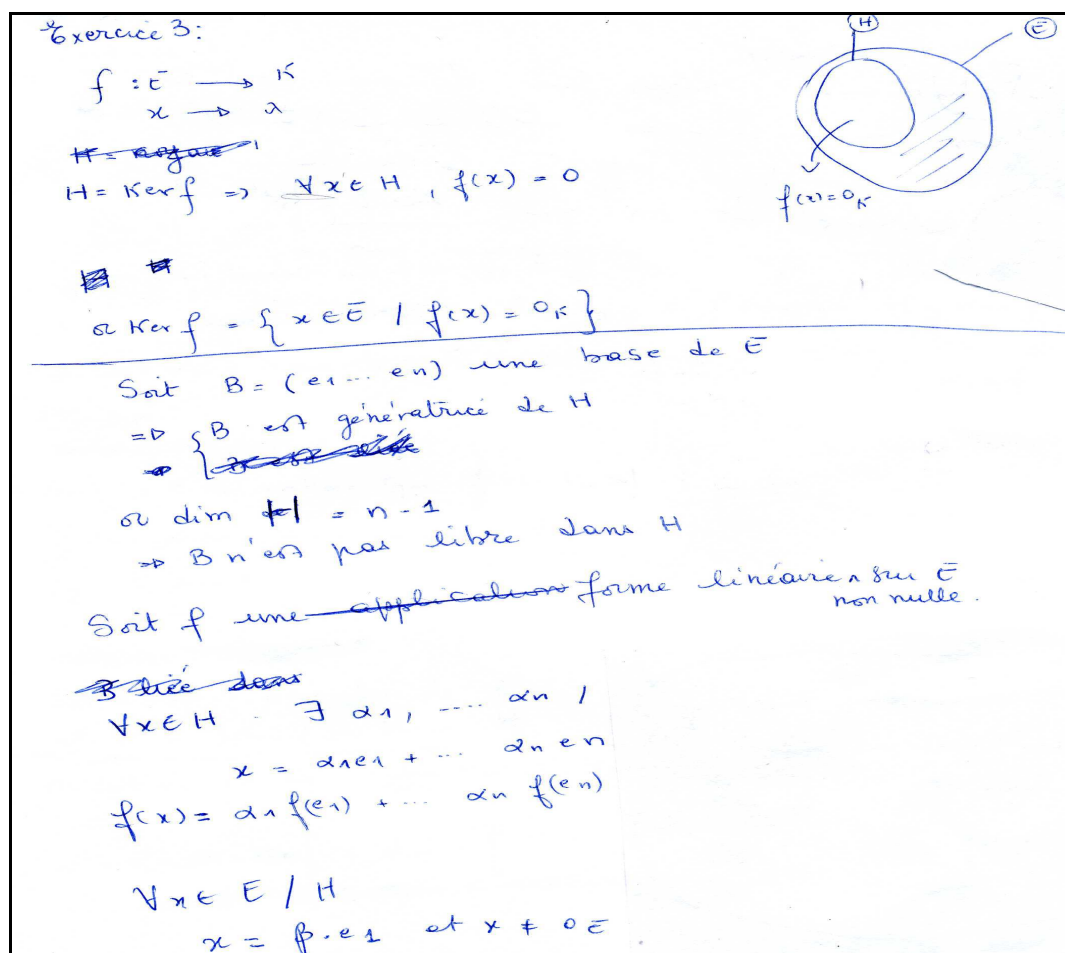 Exercice 3:
H
E
f : E → K
x → λ
H = Ker f => ∀x ∈ H, f(x) = 0
f(x)=0K
or Ker f = { x ∈ E / f(x) = 0K }
Soit B = (e1 ... en) une base de E
=> { B est génératrice de H
or dim H = n - 1
=> B n'est pas libre dans H
Soit f une application forme linéaire ∧ sur E
non nulle.
B liée dans
∀x ∈ H ∃ α1, .... αn /
x = α1e1 + ... αn en
f(x) = α1 f(e1) + ... αn f(en)
∀x ∈ E / H
x = β.e1 et x ≠ 0E